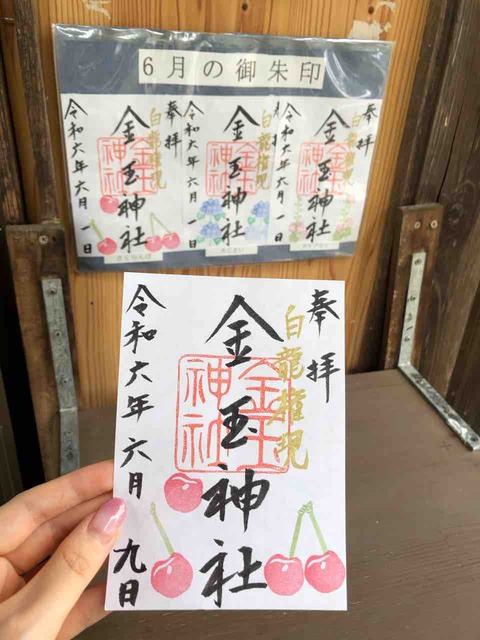 6月の御朱印
奉拝
白龍権現
金玉神社
金玉神社
令和六年六月一日
さくらんぼ
奉拝
白龍権現
金玉神社
金玉神社
令和六年六月一日
あじさい
奉拝
白龍権現
金玉神社
金玉神社
令和六年六月一日
奉拝
白龍権現
金玉神社
金玉神社
令和六年六月九日